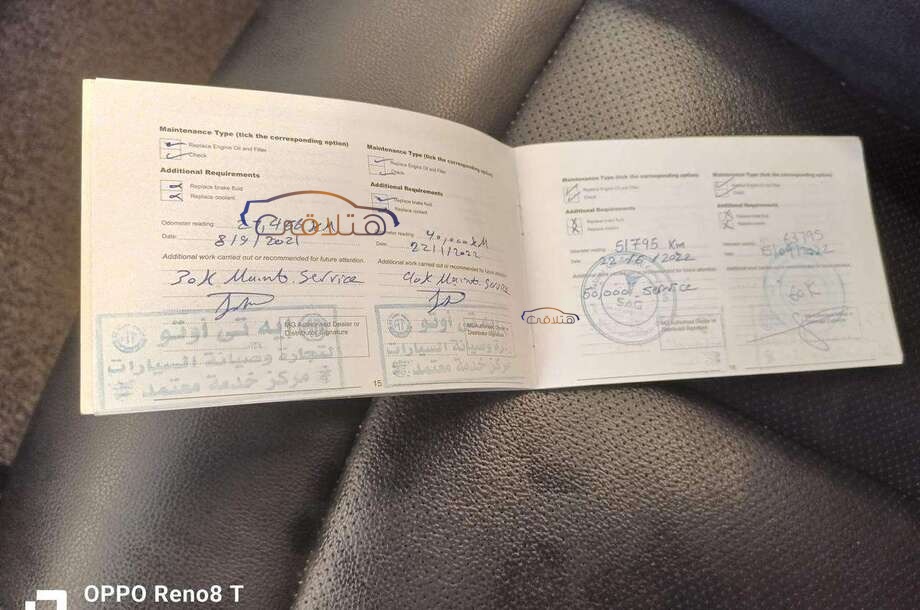 Maintenance Type (tick the corresponding option)
Replace Engine Oil and Filter
Check
Additional Requirements
Replace brake fluid
Replace coolant
Odometer reading
Date: 8/9/2021
Additional work carried out or recommended for future attention.
30K Maint. Service
MG Authorised Dealer or
Distributor Signature
إيه تي أوتو
لتجارة وصيانة السيارات
مركز خدمة معتمد
15
Maintenance Type (tick the corresponding option)
Replace Engine Oil and Filter
Check
Additional Requirements
Replace brake fluid
Replace coolant
Odometer reading 40,000 KM
Date: 22/1/2022
Additional work carried out or recommended for future attention.
40K Maint. Service
MG Authorised Dealer or
Distributor Signature
تي أوتو
وصيانة السيارات
مركز خدمة معتمد
هتلاقى
Maintenance Type (tick the corresponding option)
Replace Engine Oil and Filter
Check
Additional Requirements
Replace brake fluid
Replace coolant
Odometer reading 51795 Km
Date 22/5/2022
50,000 Service
MG Authorised Dealer or
Distributor Signature
هتلاقى
Maintenance Type (tick the corresponding option)
Replace Engine Oil and Filter
Check
Additional Requirements
Replace brake fluid
Replace coolant
63795
60K
16
OPPO Reno8 T